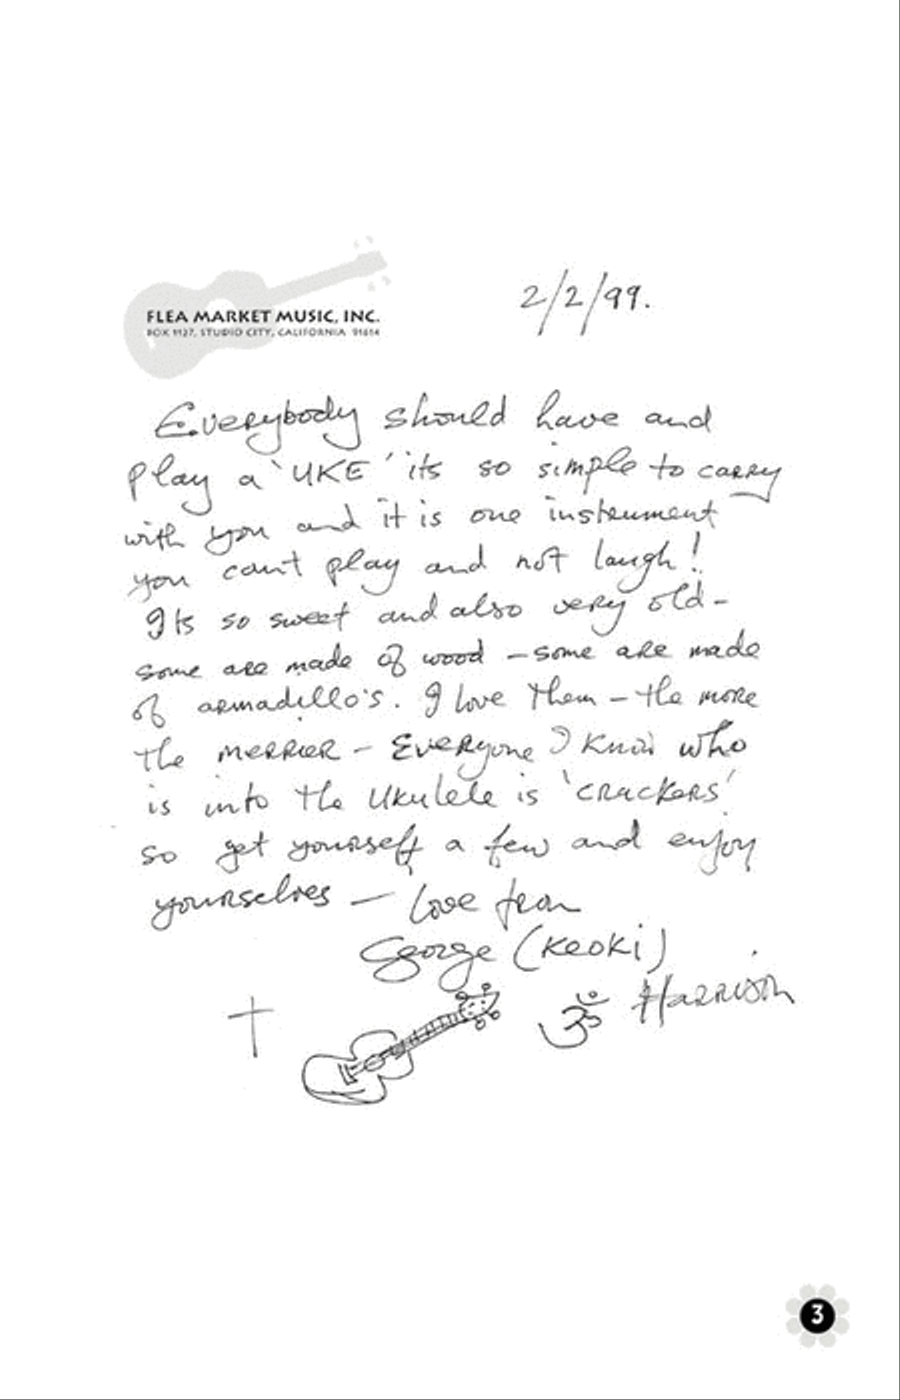 2/2/99.
FLEA MARKET MUSIC, INC.
BOX 1127, STUDIO CITY, CALIFORNIA 91614
Everybody should have and
play a 'UKE' its so simple to carry
with you and it is one instrument
you can't play and not laugh!
Its so sweet and also very old -
some are made of wood - some are made
of armadillo's. I love them - the more
the merrier - Everyone I know who
is into the Ukulele is 'crackers'
so get yourself a few and enjoy
yourselves - Love from
George (Keoki)
Harrison
ॐ
3